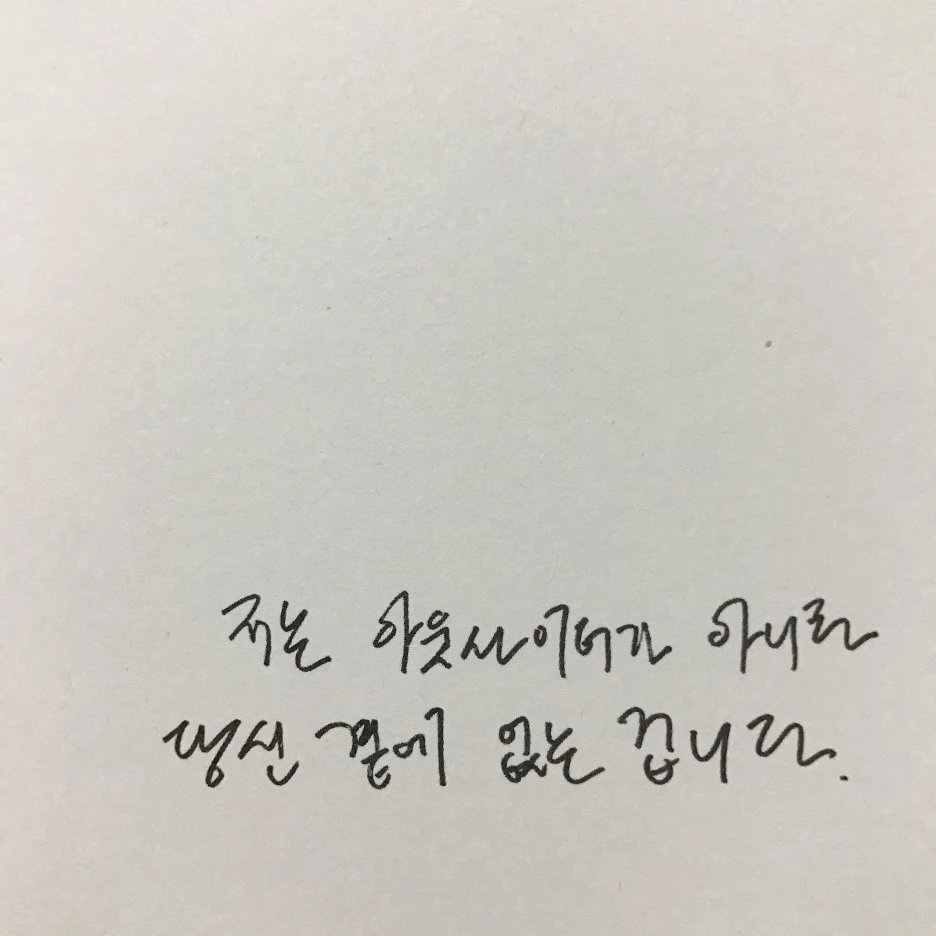 저는 아웃사이더가 아니라
당신 곁에 없는 겁니다.